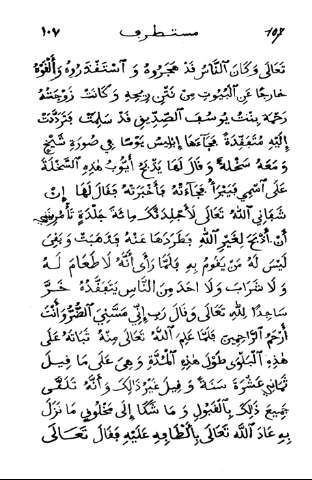 ١٠٧ مستطرف ١٥٣
تَعَالَى وَكَانَ النَّاسُ قَدْ هَجَرُوهُ وَاسْتَقْذَرُوهُ وَأَلْقَوْهُ
خَارِجًا عَنِ الْبُيُوتِ مِنْ نَتْنِ رِيحِهِ وَكَانَتْ زَوْجَتُهُ
رَحْمَةُ بِنْتُ يُوسُفَ الصِّدِّيقِ قَدْ سَلِمَتْ فَتَرَدَّدَتْ
إِلَيْهِ مُتَفَقِّدَةً فَجَاءَهَا إِبْلِيسُ يَوْمًا فِي صُورَةِ شَيْخٍ
وَمَعَهُ سَخْلَةٌ وَقَالَ لَهَا يَذْبَحُ أَيُّوبُ هَذِهِ السَّخْلَةَ
عَلَى اسْمِي فَيَبْرَأُ فَجَاءَتْهُ فَأَخْبَرَتْهُ فَقَالَ لَهَا إِنْ
شَفَانِي اللَّهُ تَعَالَى لَأَجْلِدَنَّكِ مِائَةَ جَلْدَةٍ تَأْمُرِينِي
أَنْ أَذْبَحَ لِغَيْرِ اللَّهِ فَطَرَدَهَا عَنْهُ فَذَهَبَتْ وَبَقِيَ
لَيْسَ لَهُ مَنْ يَقُومُ بِهِ فَلَمَّا رَأَى أَنَّهُ لَا طَعَامَ لَهُ
وَلَا شَرَابَ وَلَا أَحَدَ مِنَ النَّاسِ يَتَفَقَّدُهُ خَرَّ
سَاجِدًا لِلَّهِ تَعَالَى وَقَالَ رَبِّ إِنِّي مَسَّنِيَ الضُّرُّ وَأَنْتَ
أَرْحَمُ الرَّاحِمِينَ فَلَمَّا عَلِمَ اللَّهُ تَعَالَى مِنْهُ ثَبَاتَهُ عَلَى
هَذِهِ الْبَلْوَى طُولَ هَذِهِ الْمُدَّةِ وَهِيَ عَلَى مَا قِيلَ
ثَمَانِيَ عَشْرَةَ سَنَةً وَقِيلَ غَيْرُ ذَلِكَ وَأَنَّهُ تَلَقَّى
جَمِيعَ ذَلِكَ بِالْقَبُولِ وَمَا شَكَا إِلَى مَخْلُوقٍ مَا نَزَلَ
بِهِ عَادَ اللَّهُ تَعَالَى بِأَلْطَافِهِ عَلَيْهِ فَقَالَ تَعَالَى